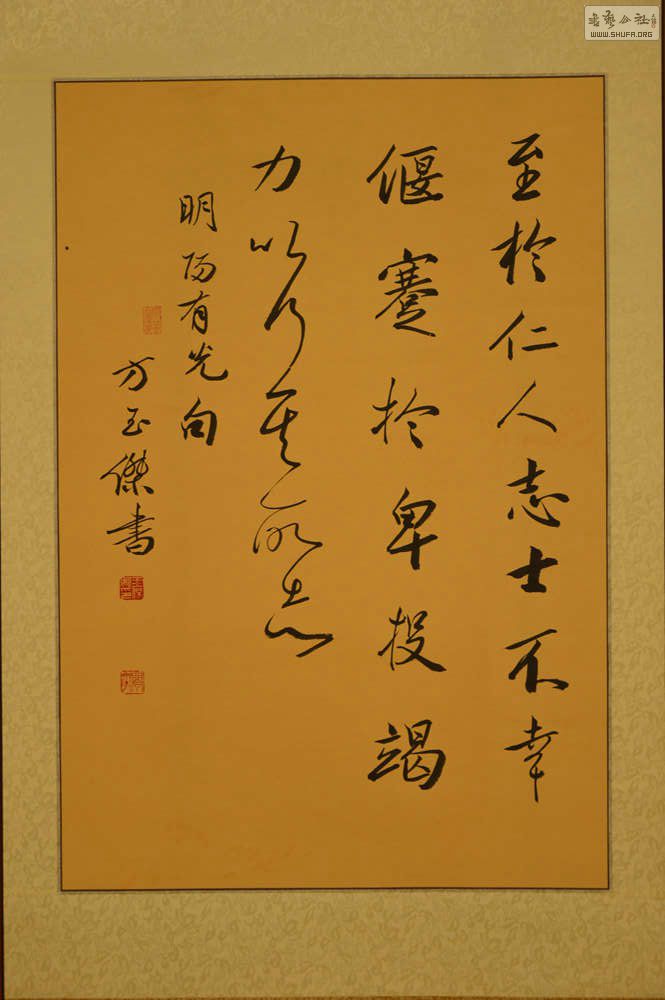 至於仁人志士不幸
偃蹇於卑役竭
力以行其所志
明归有光句
方玉傑書
书艺公社
WWW.SHUFA.ORG